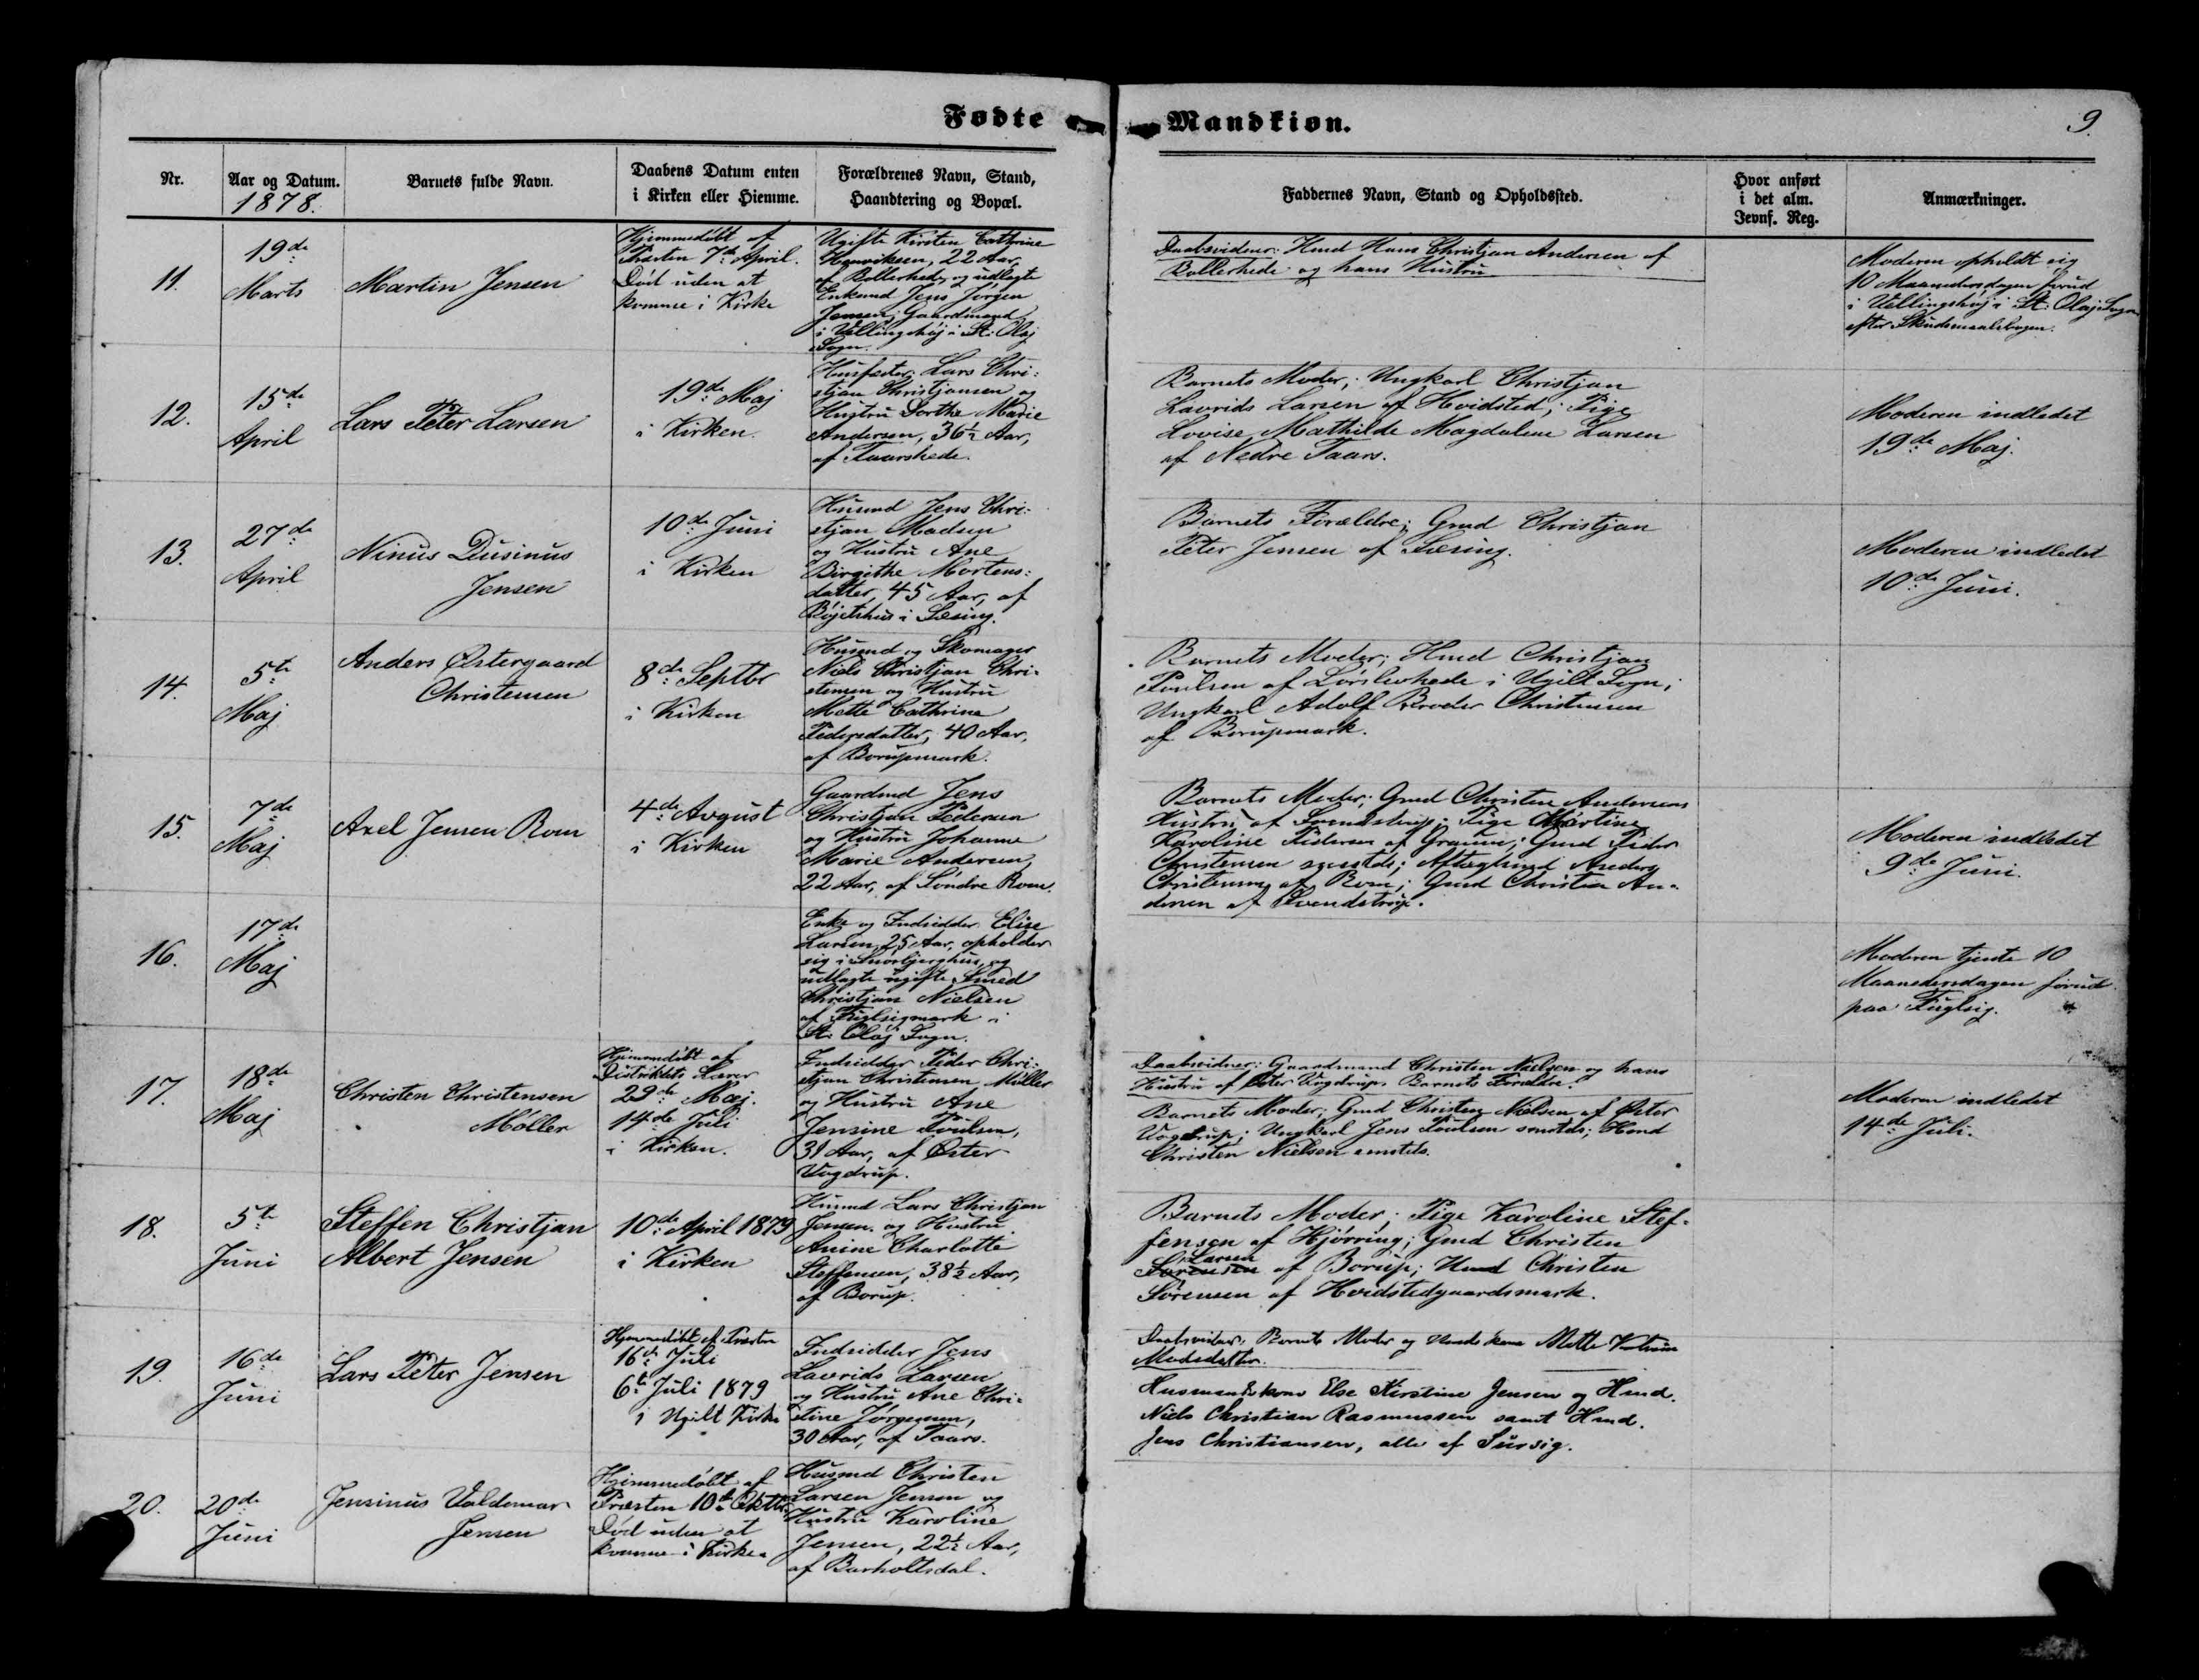 Fødte
Mandkiøn.
9.
Nr.
Aar og Datum.
1878.
Barnets fulde Navn.
Daabens Datum enten
i Kirken eller Hiemme.
Forældrenes Navn, Stand,
Haandtering og Bopæl.
Faddernes Navn, Stand og Opholdssted.
Hvor anført
i det alm.
Jevnf. Reg.
Anmærkninger.
11.
19de
Marts
Martin Jensen
Hjemmedøbt af
Præsten 7de April.
Død uden at
komme i Kirke
Ugifte Kirsten Cathrine
Henriksen, 22 Aar,
af Bollerhede, og udlagte
Enkemd Jens Jørgen
Jensen, Gaardmand
i Vellingshøj i St: Olaj
Sogn.
Daabsvidner: Hmd Hans Christjan Andersen af
Bollerhede og hans Hustru
Moderen opholdt sig
10 Maanedersdagen forud
i Vellingshøj i St. Olaj Sogn
efter Skudsmaalsbogen.
12.
15de
April
Lars Peter Larsen
19de Maj
i Kirken.
Husfæster Lars Chri-
stjan Christjansen og
Hustru Dorthe Marie
Andersen, 36½ Aar,
af Taarshede.
Barnets Moder; Ungkarl Christjan
Lavrids Larsen af Hvidsted; Pige
Lovise Mathilde Magdalene Larsen
af Nedre Taars.
Moderen indledet
19de Maj.
13.
27de
April
Ninus Dusinus
Jensen
10de Juni
i Kirken
Husmd Jens Chri-
stjan Madsen
og Hustru Ane
Birgithe Mortens-
datter, 45 Aar, af
Bøjetshus i Sæsing.
Barnets Forældre; Gmd Christjan
Peter Jensen af Sæsing.
Moderen indledet
10de Juni.
14.
5te
Maj
Anders Østergaard
Christensen
8de Septbr
i Kirken
Husmd og Skomager
Niels Christjan Chri-
stensen og Hustru
Mette Cathrine
Pedersdatter, 40 Aar,
af Borupmark.
Barnets Moder; Hmd Christjan
Poulsen af Lørslevhede i Ugilt Sogn;
Ungkarl Adolf Broder Christensen
af Borupmark.
15.
7de
Maj
Axel Jensen Rom
4de Avgust
i Kirken
Gaardmd Jens
Christjan Pedersen
og Hustru Johanne
Marie Andersen,
22 Aar, af Søndre Rom.
Barnets Moder; Gmd Christen Andersens
Hustru af Svendstrup; Pige Martine
Karoline Pedersen af Gramm; Gmd Peder
Christensen smstds; Aftægtsmd Anders
Christensen af Rom; Gmd Christen An-
dersen af Svendstrup.
Moderen indledet
9de Juni.
16.
17de
Maj
Enke og Indsidder Elise
Larsen, 25 Aar, opholder
sig i Snorbjerghus, og
udlagte ugifte Smed
Christjan Nielsen
af Fuglsigmark i
St. Olaj Sogn.
Moderen tjente 10
Maanedersdagen forud
paa Fuglsig.
17.
18de
Maj
Christen Christensen
Møller
Hjemmedøbt af
Distriktets Lærer
29de Maj.
14de Juli
i Kirken.
Indsidder Peder Chri-
stjan Christensen Møller
og Hustru Ane
Jensine Poulsen,
31 Aar, af Øster
Vogdrup.
Daabsvidner: Gaardmand Christen Nielsen og hans
Hustru af Øster Vogdrup. Barnets Forældre.
Barnets Moder; Gmd Christen Nielsen af Øster
Vogdrup; Ungkarl Jens Poulsen smstds; Hmd
Christen Nielsen smstds.
Moderen indledet
14de Juli.
18.
5te
Juni
Steffen Christjan
Albert Jensen
10de April 1879
i Kirken
Husmd Lars Christjan
Jensen og Hustru
Anine Charlotte
Steffensen, 38½ Aar,
af Borup.
Barnets Moder; Pige Karoline Stef-
fensen af Hjørring; Gmd Christen
Larsen
Sørensen af Borup; Hmd Christen
Sørensen af Hvidstedgaardsmark.
19.
16de
Juni
Lars Peter Jensen
Hjemmedøbt af Præsten
16de Juli
6te Juli 1879
i Ugilt Kirke
Indsidder Jens
Lavrids Larsen
og Hustru Ane Chri-
stine Jørgensen,
30 Aar, af Taars.
Daabsvidner: Barnets Moder og Mette
Madsdatter.
Husmandskone Else Kirstine Jensen og Hmd.
Niels Christian Rasmussen samt Hmd.
Jens Christiansen, alle af Sursig.
20.
20de
Juni
Jensinus Valdemar
Jensen
Hjemmedøbt af
Præsten 10de Oktbr.
Død uden at
komme i Kirke
Husmd Christen
Larsen Jensen og
Hustru Karoline
Jensen, 22½ Aar,
af Barholtsdal.